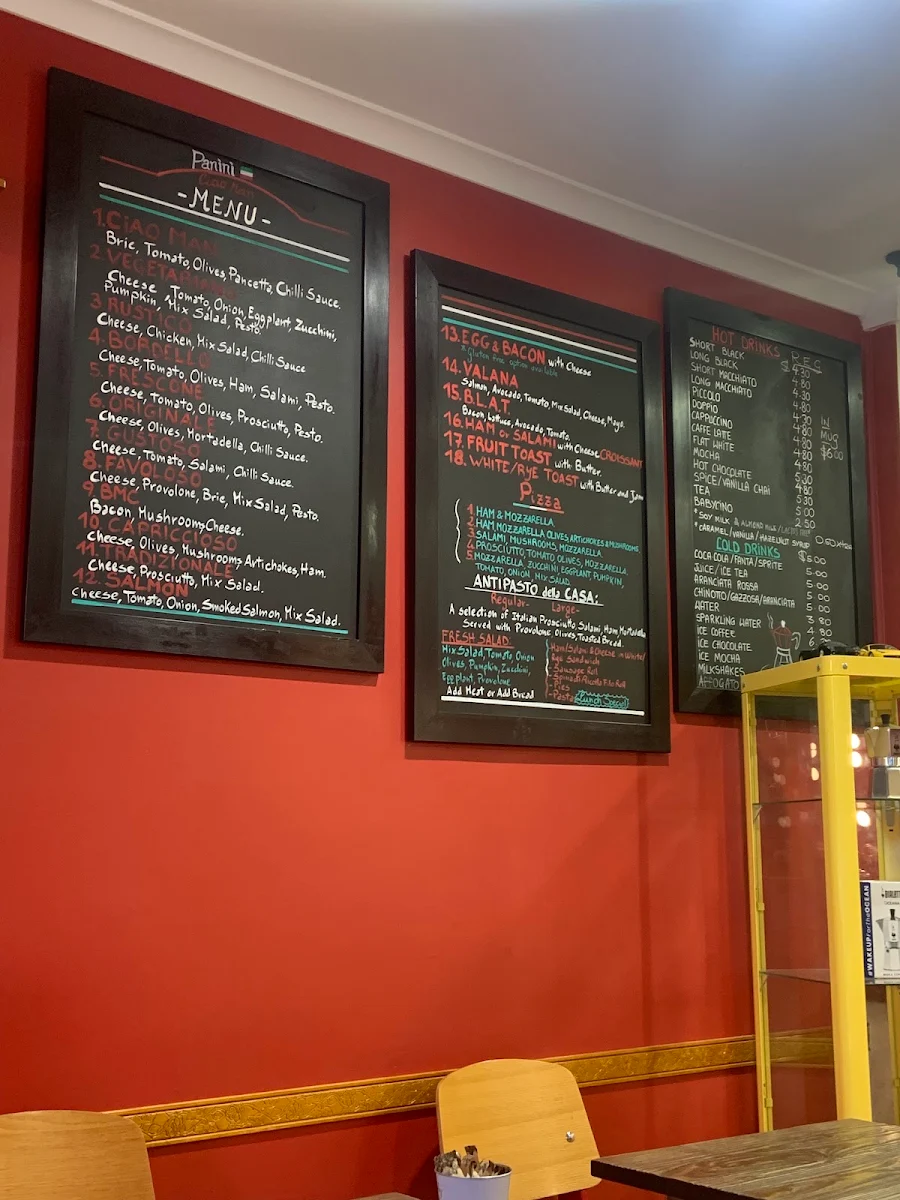 Panini
Ciao Man
-MENU-
1. CIAO MAN
Brie, Tomato, Olives, Pancetta, Chilli Sauce.
2. VEGETARIANO
Cheese Tomato, Onion, Eggplant, Zucchini,
Pumpkin, Mix Salad, Pesto.
3 RUSTICO
Cheese, Chicken, Mix Salad, Chilli Sauce
4. BORDELLO
Cheese Tomato, Olives, Ham, Salami, Pesto.
5. FRESCONE
Cheese, Tomato, Olives, Prosciutto, Pesto.
6. ORIGINALE
Cheese, Olives, Mortadella, Chilli Sauce.
7 GUSTOSO
Cheese, Tomato, Salami, Chilli Sauce.
8. FAVOLOSO
Cheese, Provolone, Brie, Mix Salad, Pesto.
9. BMC
Bacon, Mushrooms, Cheese.
10. CAPRICCIOSO
Cheese, Olives, Mushrooms, Artichokes, Ham.
11. TRADIZIONALE
Cheese, Prosciutto, Mix Salad.
12. SALMON
Cheese, Tomato, Onion, Smoked Salmon, Mix Salad.
13. EGG & BACON with Cheese
Gluten free option available
14. VALANA
Salmon, Avocado, Tomato, Mix Salad, Cheese, Mayo.
15. B.L.A.T.
Bacon, Lettuce, Avocado, Tomato.
16. HAM or SALAMI with Cheese CROISSANT
17. FRUIT TOAST with Butter.
18. WHITE/RYE TOAST with Butter and Jam
Pizza
1. HAM & MOZZARELLA
2. HAM, MOZZARELLA, OLIVES, ARTICHOKES & MUSHROOMS
3. SALAMI, MUSHROOMS, MOZZARELLA
4. PROSCIUTTO, TOMATO, OLIVES, MOZZARELLA
5. MOZZARELLA, ZUCCHINI, EGGPLANT, PUMPKIN,
TOMATO, ONION, MIX SALAD
ANTIPASTO della CASA:
Regular- Large-
A selection of Italian Prosciutto, Salami, Ham, Mortadella
Served with Provolone, Olives, Toasted Bread.
FRESH SALAD:
Mix Salad, Tomato, Onion
Olives, Pumpkin, Zucchini,
Eggplant, Provolone
Add Meat or Add Bread
Ham/Salami & Cheese in White/
Rye Sandwich
-Sausage Roll
-Spinach Ricotta Filo Roll
-Pies
-Pasta Lunch Special
HOT DRINKS REG
SHORT BLACK $ 4.30
LONG BLACK 4.80
SHORT MACCHIATO 4.30
LONG MACCHIATO 4.80
PICCOLO 4.30
DOPPIO 4.30
CAPPUCCINO 4.80
CAFFE LATTE 4.80
FLAT WHITE 4.80
MOCHA 4.80
HOT CHOCOLATE
SPICE/VANILLA CHAI 5.30
TEA 4.80
BABYCINO
IN
MUG
$6.00
5.30
5.00
2.50
*SOY MILK & ALMOND MILK
*CARAMEL/VANILLA/HAZELNUT SYRUP
COLD DRINKS
COCA COLA/FANTA/SPRITE $5.00
JUICE/ICE TEA 5.00
ARANCIATA ROSSA 5.00
CHINOTTO/GAZZOSA/ARANCIATA 5.00
WATER
SPARKLING WATER 3.80
ICE COFFEE
ICE CHOCOLATE
ICE MOCHA
MILKSHAKES
AFFOGATO
#WAKEUPfortheOCEAN
BIALETTI